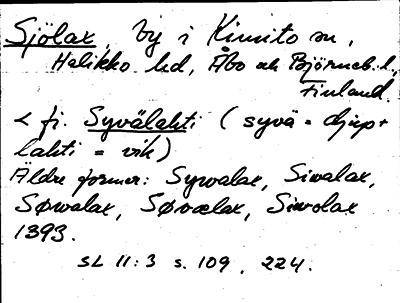 Sjölax, by i Kimito sn,
Halikko hd, Åbo och Björneb. l.,
Finland.
< fi. Syvälahti (syvä = djup +
lahti = vik)
Äldre former: Sywalax, Siwalax,
Søwalax, Søvælax, Siwolax
1393.
SL 11:3 s. 109, 224.